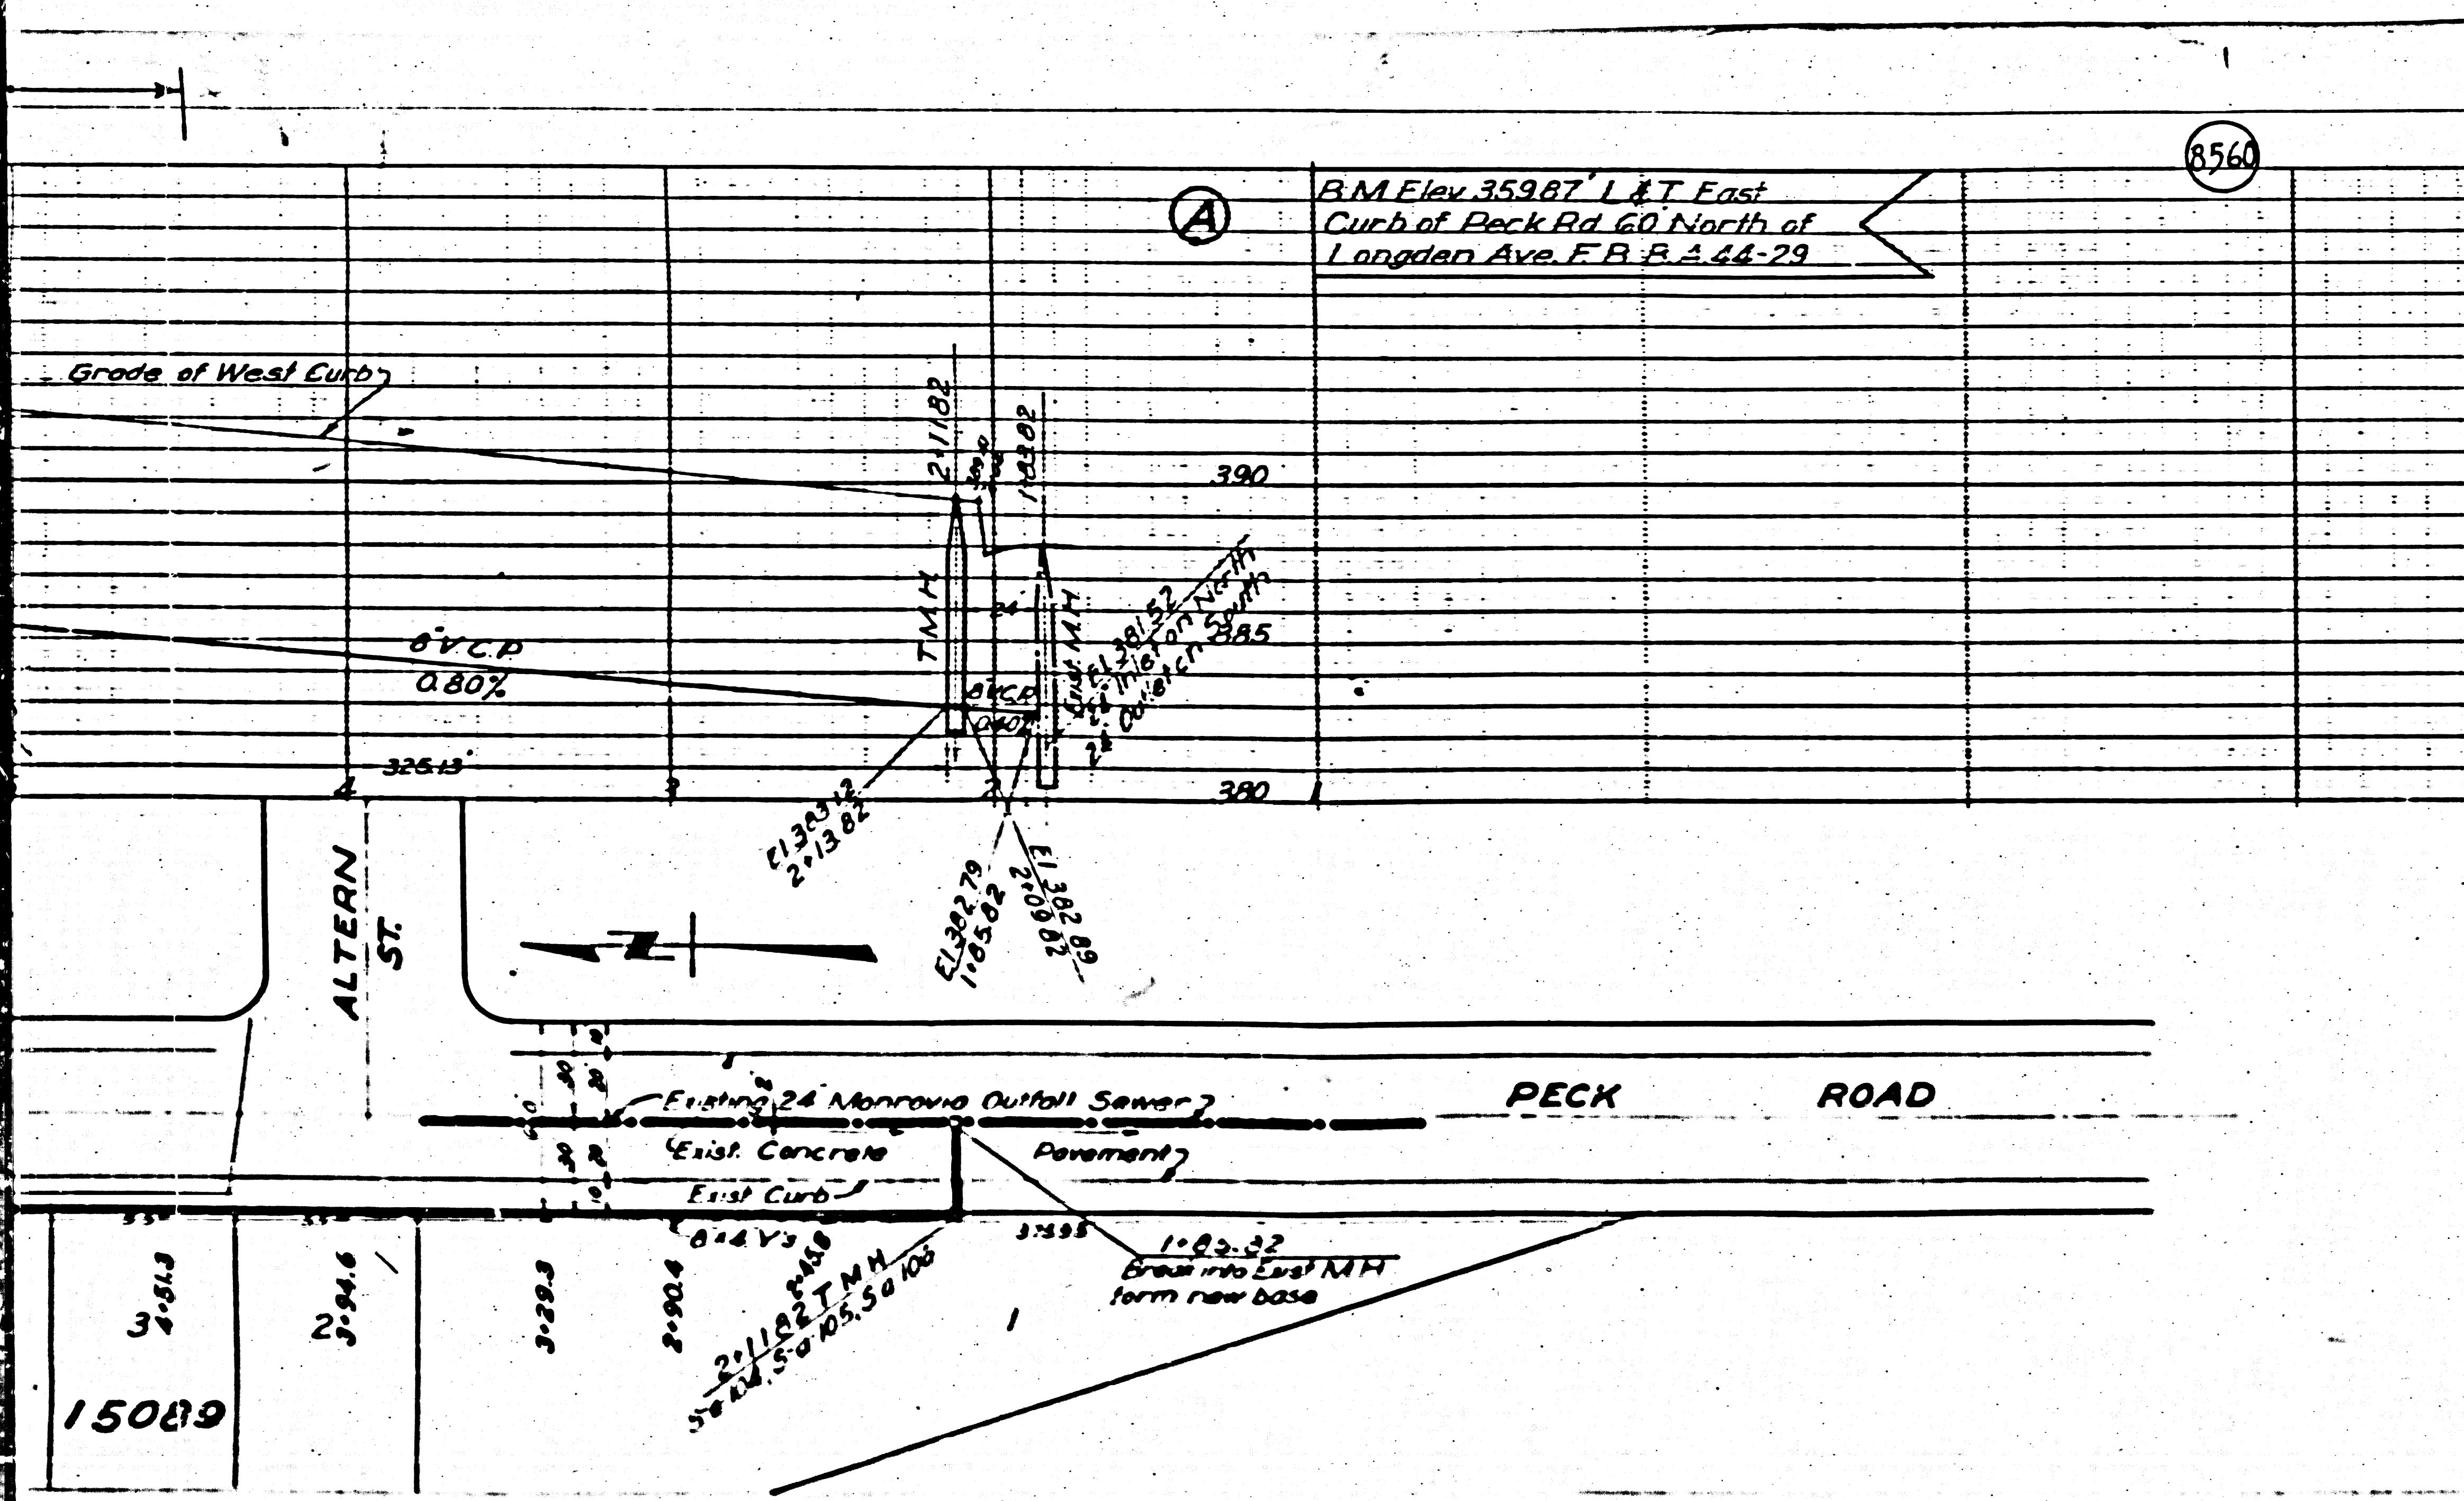 8560
A
B.M. Elev. 359.87' L & T. East
Curb of Peck Rd 60' North of
Longden Ave. F.B.
44-29
Grade of West Curb
2+11.82
1+83.82
390
T.M.H.
24"
Exist. M.H.
El. 381.52
Inlet on North
Outlet on South
385
8" V.C.P.
0.80%
8" V.C.P.
0.40%
325.13'
4
3
2
1
380
El. 383.12
2+13.82
El. 382.79
1+85.82
El. 382.89
2+09.82
ALTERN
ST.
N
10
30
20
Existing 24" Monrovia Outfall Sewer
PECK ROAD
60
30
20
Exist. Concrete
Pavement
10
Exist Curb
8x4 Y's
Break into Exist M.H.
form new base
3
4+51.3
2
3+94.6
3+29.3
2+90.4
2+45.8
2+11.82 T.M.H.
1
15089